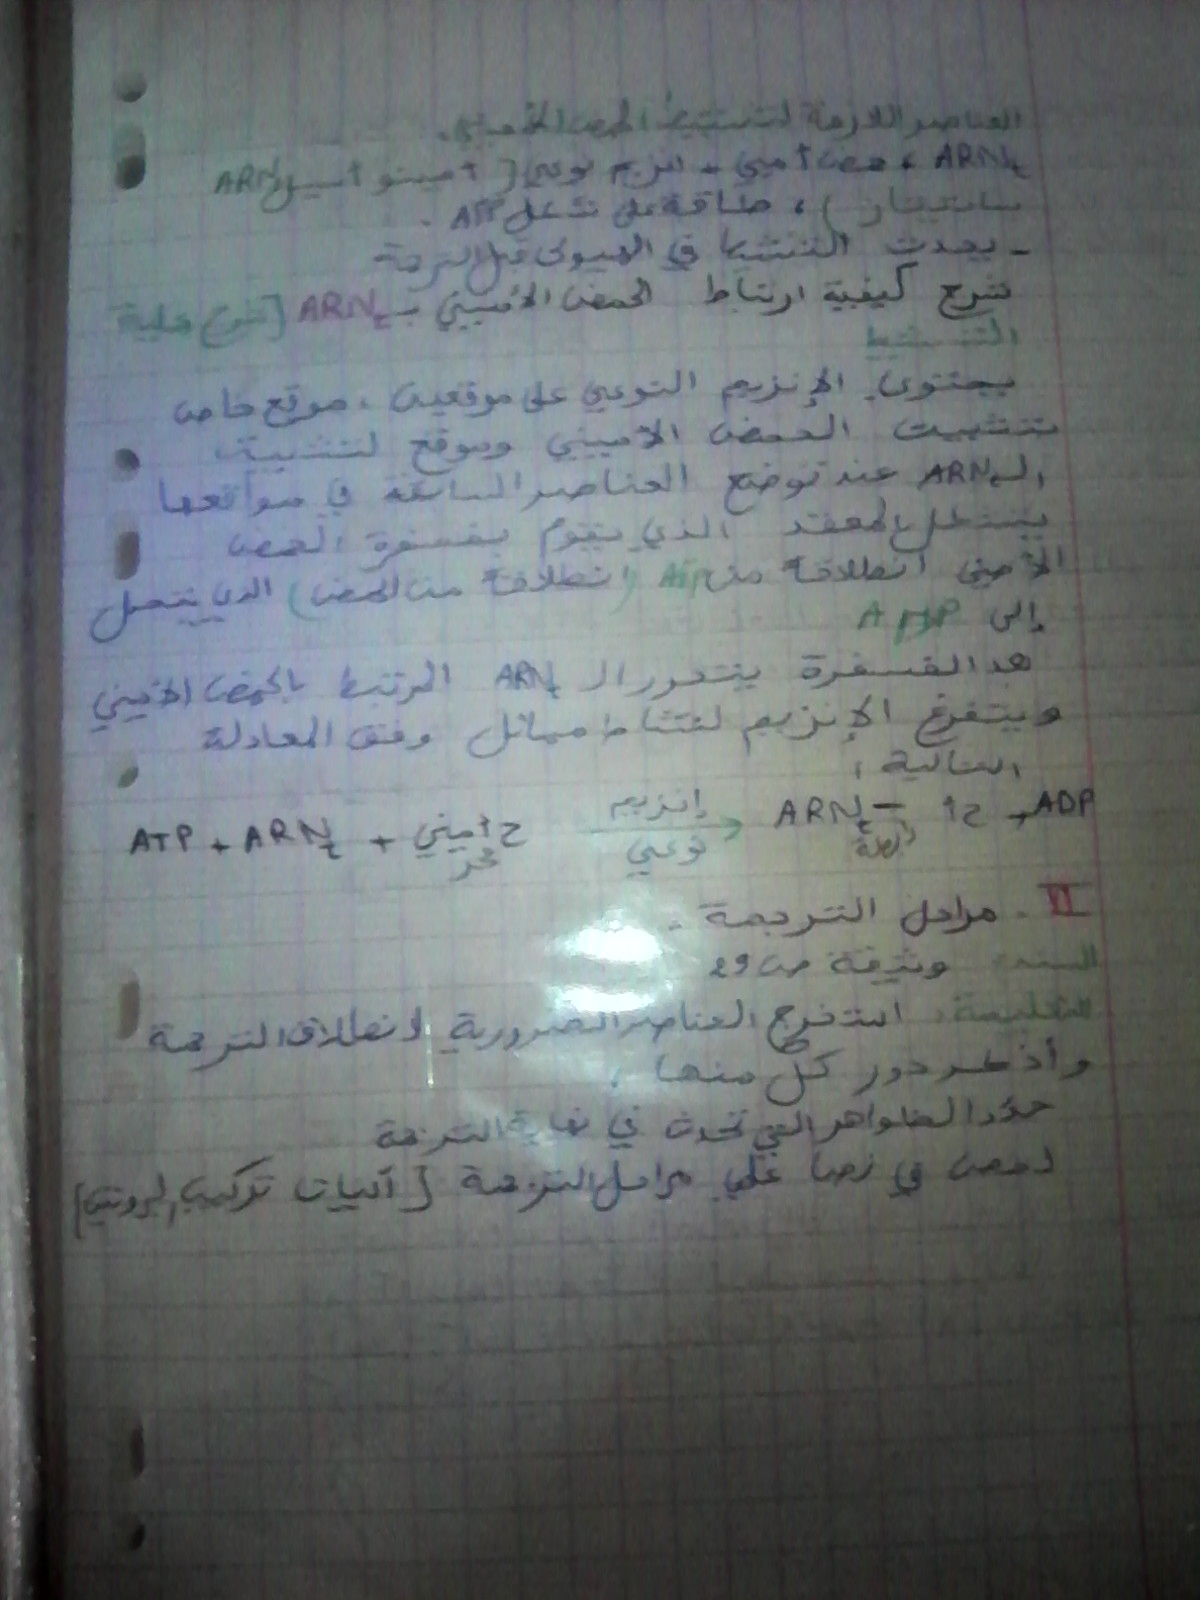 العناصر اللازمة لتنشيط الحمض الأميني.
ARNt ، حمض أميني ، انزيم نوعي [ أمينو أسيل ARNt
سانتيتاز ) ، طاقة على شكل ATP .
- يحدث التنشيط في الهيولى قبل الترجمة
شرح كيفية ارتباط الحمض الأميني بـ ARNt [شرح عملية
التنشيط
يحتوي الإنزيم النوعي على موقعين ، موقع خاص
بتثبيت الحمض الأميني وموقع لتثبيت
الـ ARNt عند توضع العناصر السابقة في مواقعها
يتشكل المعقد الذي يقوم بفسفرة الحمض
الأميني انطلاقة من ATP (انطلاقة من الحمض) الذي يتحول
إلى AMP
الفسفرة يتحرر الـ ARNt المرتبط بالحمض الأميني
ويتفرغ الإنزيم لنشاط مماثل وفق المعادلة
التالية :
ATP + ARNt + ح أميني حر إنزيم نوعي → ARNt – ح أ + ADP
VI . مراحل الترجمة .
السند : وثيقة ص 29
التعليمة : استخرج العناصر الضرورية لانطلاق الترجمة
وأذكر دور كل منها .
حدد الظواهر التي تحدث في نهاية الترجمة
لخص في نص علمي مراحل الترجمة [ آليات تركيب البروتين]